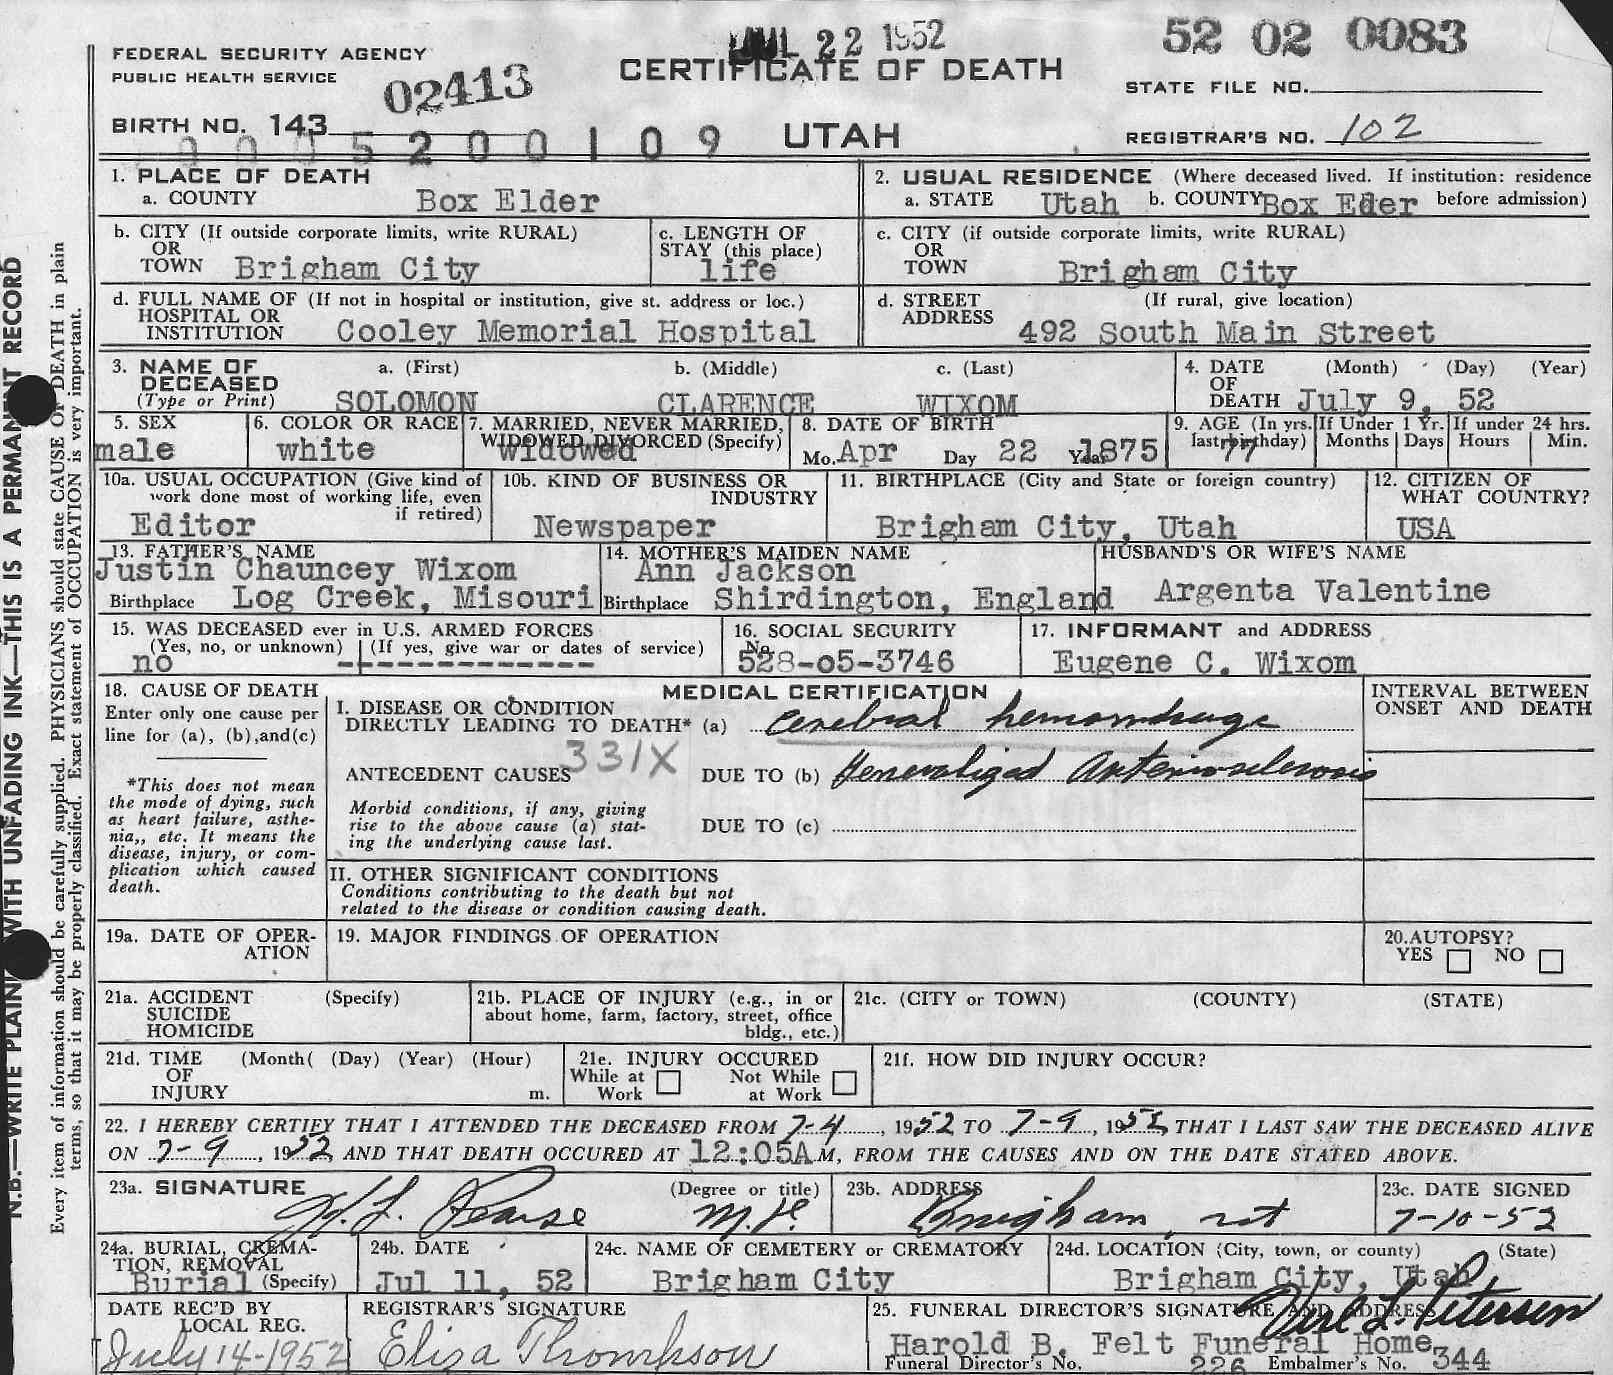 JUL 22 1952
52 02 0083
FEDERAL SECURITY AGENCY
PUBLIC HEALTH SERVICE
02413
CERTIFICATE OF DEATH
STATE FILE NO.
BIRTH NO. 143
0005200109
UTAH
REGISTRAR'S NO. 102
N.B.—WRITE PLAINLY WITH UNFADING INK—THIS IS A PERMANENT RECORD
Every item of information should be carefully supplied. PHYSICIANS should state CAUSE OF DEATH in plain
terms, so that it may be properly classified. Exact statement of OCCUPATION is very important.
1. PLACE OF DEATH
a. COUNTY Box Elder
2. USUAL RESIDENCE (Where deceased lived. If institution: residence
a. STATE Utah b. COUNTY Box Eder before admission)
b. CITY (If outside corporate limits, write RURAL)
OR
TOWN Brigham City
c. LENGTH OF
STAY (this place)
life
c. CITY (if outside corporate limits, write RURAL)
OR
TOWN Brigham City
d. FULL NAME OF (If not in hospital or institution, give st. address or loc.)
HOSPITAL OR
INSTITUTION Cooley Memorial Hospital
d. STREET (If rural, give location)
ADDRESS
492 South Main Street
3. NAME OF a. (First) b. (Middle) c. (Last)
DECEASED
(Type or Print) SOLOMON CLARENCE WIXOM
4. DATE (Month) (Day) (Year)
OF
DEATH July 9, 52
5. SEX
male
6. COLOR OR RACE
white
7. MARRIED, NEVER MARRIED,
WIDOWED, DIVORCED (Specify)
widowed
8. DATE OF BIRTH
Mo. Apr Day 22 Year 1875
9. AGE (In yrs.
last birthday)
77
If Under 1 Yr.
Months Days
If under 24 hrs.
Hours Min.
10a. USUAL OCCUPATION (Give kind of
work done most of working life, even
if retired)
Editor
10b. KIND OF BUSINESS OR
INDUSTRY
Newspaper
11. BIRTHPLACE (City and State or foreign country)
Brigham City, Utah
12. CITIZEN OF
WHAT COUNTRY?
USA
13. FATHER'S NAME
Justin Chauncey Wixom
Birthplace Log Creek, Misouri
14. MOTHER'S MAIDEN NAME
Ann Jackson
Birthplace Shirdington, England
HUSBAND'S OR WIFE'S NAME
Argenta Valentine
15. WAS DECEASED ever in U.S. ARMED FORCES
(Yes, no, or unknown) (If yes, give war or dates of service)
no -------------
16. SOCIAL SECURITY
No.
528-05-3746
17. INFORMANT and ADDRESS
Eugene C. Wixom
18. CAUSE OF DEATH
Enter only one cause per
line for (a), (b),and(c)
*This does not mean
the mode of dying, such
as heart failure, asthe-
nia,, etc. It means the
disease, injury, or com-
plication which caused
death.
MEDICAL CERTIFICATION
I. DISEASE OR CONDITION
DIRECTLY LEADING TO DEATH* (a) Cerebral hemorrhage
331X
ANTECEDENT CAUSES DUE TO (b) Generalized Arteriosclerosis
Morbid conditions, if any, giving
rise to the above cause (a) stat-
ing the underlying cause last.
DUE TO (c)
II. OTHER SIGNIFICANT CONDITIONS
Conditions contributing to the death but not
related to the disease or condition causing death.
INTERVAL BETWEEN
ONSET AND DEATH
19a. DATE OF OPER-
ATION
19. MAJOR FINDINGS OF OPERATION
20.AUTOPSY?
YES NO
21a. ACCIDENT (Specify)
SUICIDE
HOMICIDE
21b. PLACE OF INJURY (e.g., in or
about home, farm, factory, street, office
bldg., etc.)
21c. (CITY or TOWN) (COUNTY) (STATE)
21d. TIME (Month( (Day) (Year) (Hour)
OF
INJURY m.
21e. INJURY OCCURED
While at Not While
Work at Work
21f. HOW DID INJURY OCCUR?
22. I HEREBY CERTIFY THAT I ATTENDED THE DECEASED FROM 7-4, 1952 TO 7-9, 1952 THAT I LAST SAW THE DECEASED ALIVE
ON 7-9, 1952, AND THAT DEATH OCCURED AT 12:05A M, FROM THE CAUSES AND ON THE DATE STATED ABOVE.
23a. SIGNATURE (Degree or title)
Pearse M.D.
23b. ADDRESS
Brigham, Ut
23c. DATE SIGNED
7-10-52
24a. BURIAL, CREMA-
TION, REMOVAL
Burial (Specify)
24b. DATE
Jul 11, 52
24c. NAME OF CEMETERY or CREMATORY
Brigham City
24d. LOCATION (City, town, or county) (State)
Brigham City, Utah
DATE REC'D BY
LOCAL REG.
July 14-1952
REGISTRAR'S SIGNATURE
Eliza Thompson
25. FUNERAL DIRECTOR'S SIGNATURE AND ADDRESS
L. Petersen
Harold B. Felt Funeral Home
Funeral Director's No. 226 Embalmer's No. 344